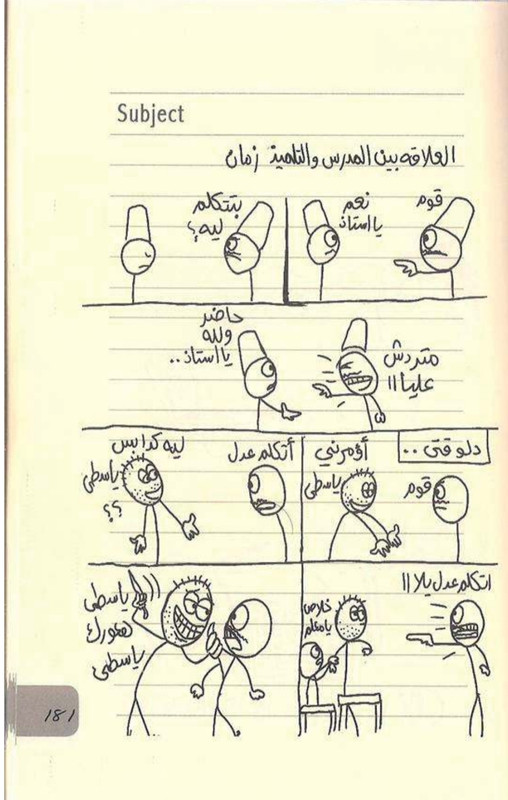 Subject
العلاقه بين المدرس والتلميذ زمان
قوم
نعم
يا استاذ
بتتكلم
ليه؟
متردش
عليا!!
حاضر
ولله
يا استاذ..
دلوقتى..
قوم
أؤمرني
ياسطى
أتكلم عدل
ليه كدا بس
ياسطى
؟؟
اتكلم عدل يلا!!
خلاص
يا معلم
ياسطى
هعورك
ياسطى
181